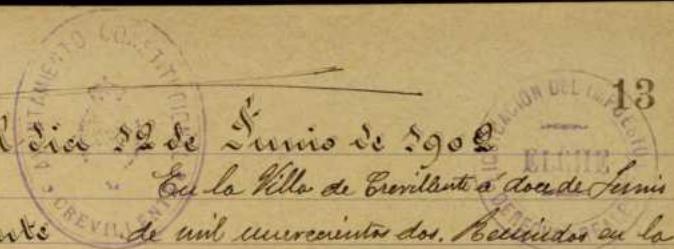 13
AYUNTAMIENTO CONSTITUCIONAL
CREVILLENTE
DEL IMPUESTO
ELCHE
dia 12 de Junio de 1902
En la Villa de Crevillente a doce de Junio
de mil novecientos dos. Reunidos en la